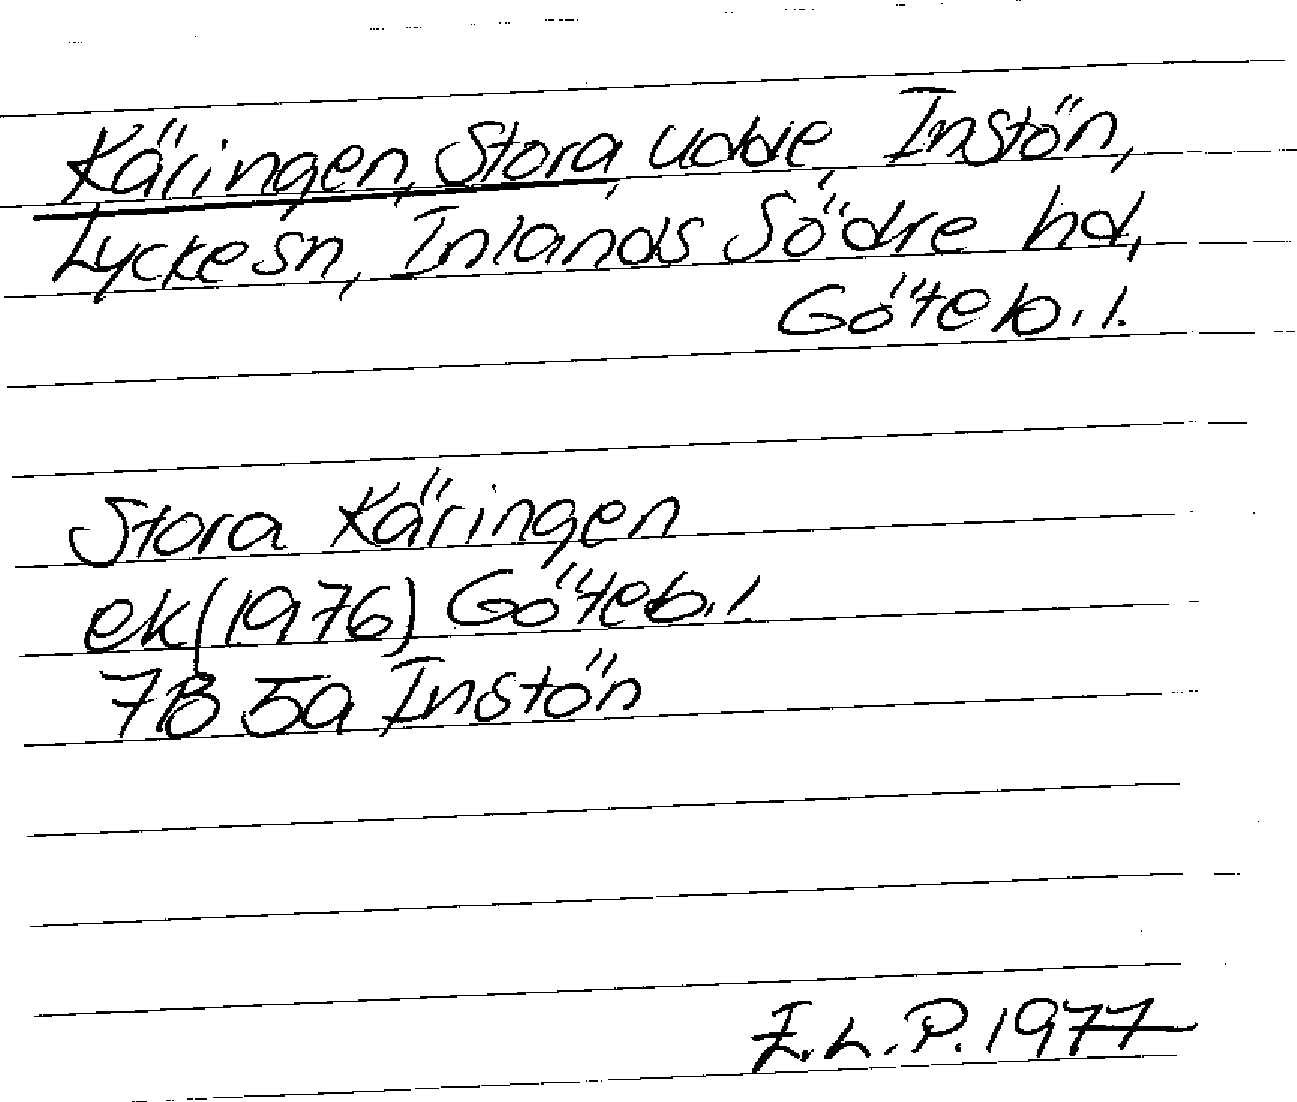 Käringen, Stora, udde, Instön,
Lycke sn, Inlands Södre hd,
Göteb. l.
Stora Käringen
ek (1976) Göteb. l.
7B 5a Instön
I. L. P. 1977